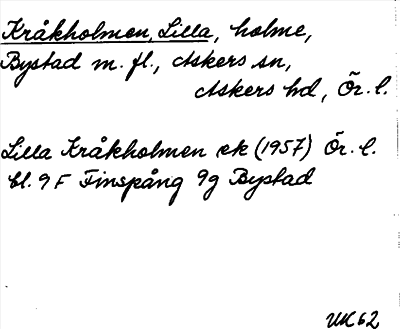 Kråkholmen, Lilla, holme,
Bystad m. fl., Askers sn,
Askers hd, Ör. l.
Lilla Kråkholmen ek (1957) Ör. l.
bl. 9F Finspång 9g Bystad
UK 62